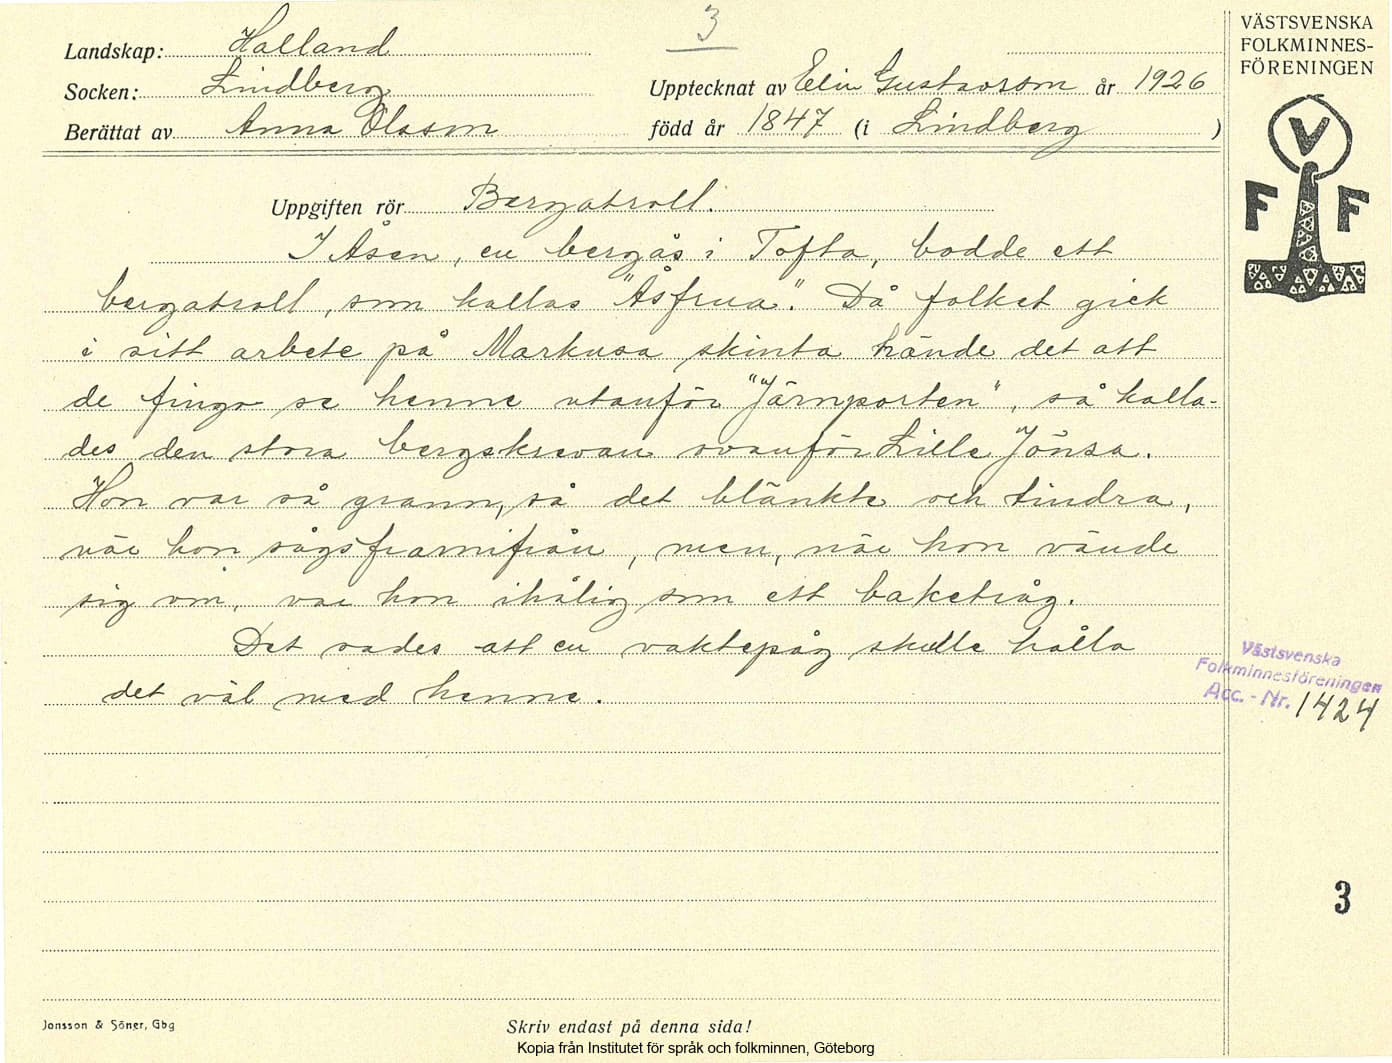 3
Landskap: Halland
Socken: Lindberg
Upptecknat av Elin Gustavsson år 1926
Berättat av Anna Olason
född år 1847 (i Lindberg )
Uppgiften rör Bergatroll.
I Åsen, en bergås i Tofta, bodde ett
bergatroll, som kallas "Åsfrua." Då folket gick
i sitt arbete på Markusa skinta hände det att
de fingo se henne utanför "Järnporten", så kalla-
des den stora bergskrevan ovanför Lille Jönsa.
Hon var så grann, så det blänkte och tindra,
när hon sågs framifrån, men, när hon vände
sig om, var hon ihålig som ett baketråg.
Det sades att en vaktepåg skulle hålla
det väl med henne.
VÄSTSVENSKA
FOLKMINNES-
FÖRENINGEN
V
F F
Västsvenska
Folkminnesföreningen
Acc. - Nr. 1424
3
Jonsson & Söner, Gbg
Skriv endast på denna sida!
Kopia från Institutet för språk och folkminnen, Göteborg